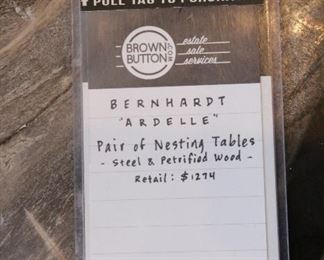 PULL TAG TO PURCHASE
BROWN
BUTTON
.COM
estate
sale
services
BERNHARDT
"ARDELLE"
Pair of Nesting Tables
- Steel & Petrified Wood -
Retail: $1274